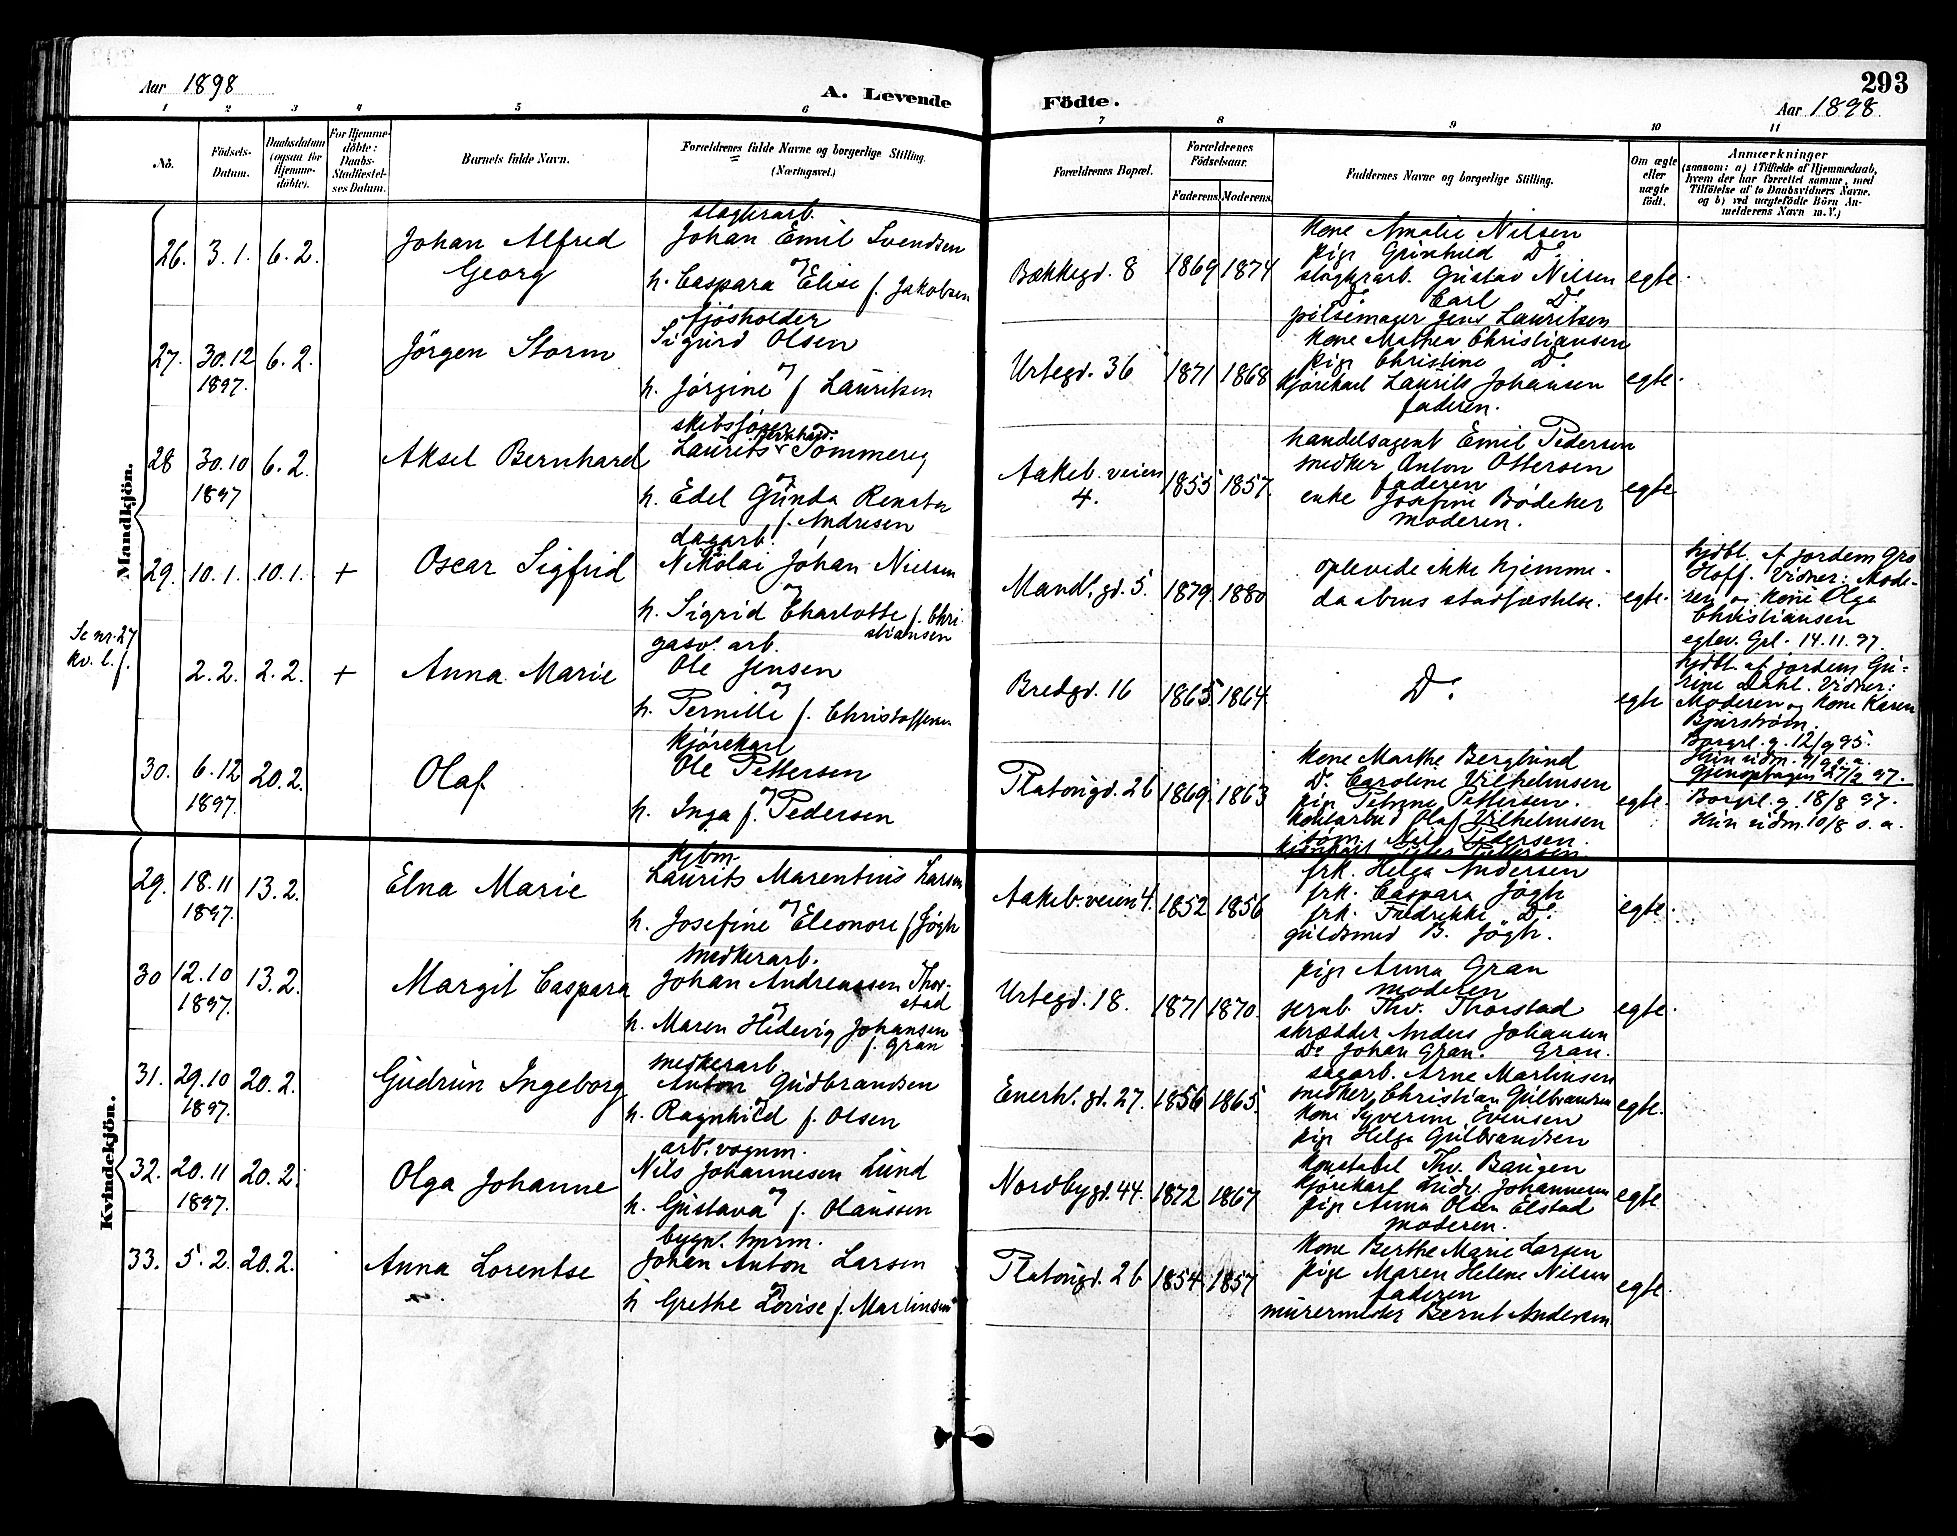 293
Aar 1898
A. Levende Födte.
Aar 1898.
1 2 3 4 5 6 7 8 9 10 11
No.
Födsels-
Datum.
Daabsdatum
(ogsaa for
Hjemme-
döbte).
For Hjemme-
döbte:
Daabs-
Stadfæstel-
ses Datum.
Barnets fulde Navn.
Forældrenes fulde Navne og borgerlige Stilling.
(Næringsvei.)
Forældrenes Bopæl.
Forældrenes
Födselsaar.
Faderens. Moderens.
Faddernes Navne og borgerlige Stilling.
Om ægte
eller
uægte
födt.
Anmærkninger
(saasom: a) i Tilfælde af Hjemmedaab,
hvem der har forrettet samme, med
Tilföielse af to Daabsvidners Navne,
og b) ved uægtefödte Börn An-
melderens Navn m. V.)
Mandkjön.
26. 3.1. 6.2.
Johan Alfred
Georg
slagterarb.
Johan Emil Svendsen
og
h. Caspara Elise f. Jakobsen
Bakkegd. 8
1869 1874
kone Amalie Nilsen
pige Grinhild Do
slagterarb. Gustav Nilsen
Do Carl Do
pølsemager Jens Lauritsen
egte.
27. 30.12 6.2.
1897.
Jörgen Storm
fjøsholder
Sigurd Olsen
og
h. Jörgine f. Lauritsen
Urtegd. 36
1871 1868
kone Mathea Christiansen
pige Christine Do
kjørekarl Laurits Johansen
faderen.
egte.
28 30.10 6.2.
1897
Aksel Bernhard
skibsfører
Laurits Sommereg
og
h. Edel Gunda Renata
f. Andresen
Aakeb. veien
4.
1855 1857.
handelsagent Emil Pedersen
snedker Anton Ottersen
faderen
enke Josefine Bödeker
moderen.
egte
29. 10.1. 10.1. +
Oscar Sigfrid
dagarb.
Nikolai Johan Nielsen
og
h. Sigrid Charlotte f. Chri-
stiansen
Mandl. gd. 5.
1879. 1880
oplevede ikke hjemme-
daabens stadfæstelse.
egte.
hjdbt. af jordem. Gro
Hoff. Vidner: Mode-
ren og kone Olga
Christiansen
egtev. Grl. 14.11.97.
Se nr. 27
kv. l. f.
2.2. 2.2. +
Anna Marie
gasv. arb.
Ole Jensen
og
h. Pernille f. Christoffersen
Bredgd. 16
1865. 1864.
Do
egte
hjdbt. af jordem. Gu-
rine Dahl. Vidner:
Moderen og kone Karen
Bjurstrøm.
30. 6.12 20.2.
1897.
Olaf
kjörekarl
Ole Pettersen
og
h. Inga f. Pedersen
Platougd. 26
1869. 1863
kone Marthe Berglund
Do Caroline Vilhelmsen
pige Petrine Pettersen.
kontorbud Olaf Vilhelmsen
tøm. Nils Pedersen.
kjørekarl Peter Pettersen.
egte.
Borgrl. g. 12/9 95.
Hun vidm. 4/9 s. a.
Gjenoptagen 27/2 97.
Borgrl. g. 18/8 97.
Hun vidm. 10/8 s. a.
Kvindekjön.
29. 18.11 13.2.
1897.
Elna Marie
kjbm.
Laurits Marentius Larsen
og
h. Josefine Eleonore f Jøgh
Aakeb. veien 4.
1852 1856
frk. Helga Andersen
frk. Caspara Jøgh
frk. Fredrikke Do
guldsmed B. Jøgh.
egte.
30 12.10 13.2.
1897.
Margit Caspara
snedkerarb.
Johan Andreassen Thor-
stad
og
h. Maren Hedevig Johansen
f. Gran
Urtegd. 18.
1871 1870.
pige Anna Gran
moderen
Thv. Thorstad
skrædder Anders Johansen
Do Johan Gran. Gran.
egte.
31. 29.10 20.2.
1897.
Gudrun Ingeborg
snedkerarb.
Anton Gudbrandsen
og
h. Ragnhild f. Olsen
Enerh. gd. 27.
1856 1865.
sagarb. Arne Martinsen
snedker Christian Gulbrandsen
kone Syverine Evensen
pige Helga Gulbrandsen
egte.
32. 20.11 20.2.
1897.
Olga Johanne
arb. vognm.
Nils Johannesen Lund
og
h. Gustava f. Olaussen
Nordbygd. 44.
1872 1867
konstabel Thv. Baugen
kjørekarl Ludv. Johannesen
pige Anna Olsen Elstad
moderen.
egte
33. 5.2. 20.2.
Anna Lorentse
bygn. tmrm.
Johan Anton Larsen
og
h Grethe Lovise f. Martinsen
Platougd. 26
1854 1857
kone Berthe Marie Larsen
pige Maren Helene Nilsen
faderen
murermester Bernt Andersen
egte.